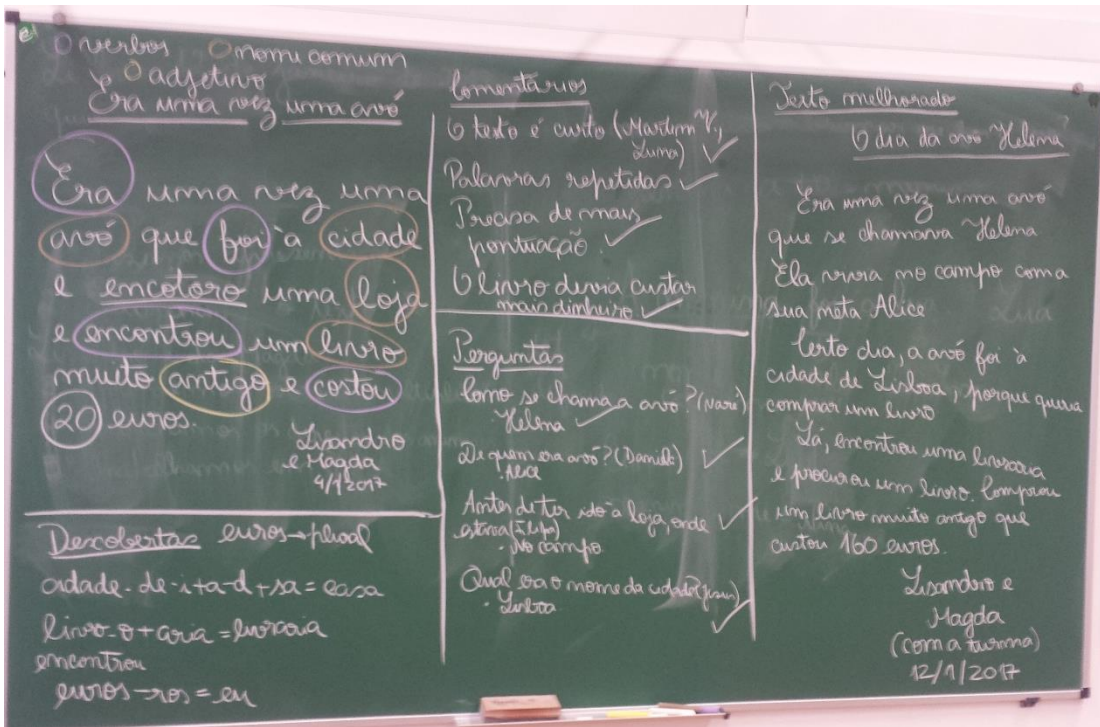 verbos nome comum
adjetivo
Era uma vez uma avó
Era uma vez uma
avó que foi à cidade
e encotoro uma loja
e encontrou um livro
muito antigo e costou
20 euros.
Lisandro
e Magda
4/1/2017
Descobertas euros→plural
cidade-de-i+a-d+sa=casa
livro-o+aria=livraria
encontrou
euros→ros=eu
Comentários
O texto é curto (Martim V.,
Luna)
Palavras repetidas
Precisa de mais
pontuação.
O livro devia custar
mais dinheiro
Perguntas
Como se chama a avó?
Helena
De quem era avó? (Daniel)
Alice
Antes de ter ido à loja, onde
estava
. No campo
Qual era o nome da cidade?
. Lisboa
Texto melhorado
O dia da avó Helena
Era uma vez uma avó
que se chamava Helena
Ela vivia no campo com a
sua neta Alice
Certo dia, a avó foi à
cidade de Lisboa, porque queria
comprar um livro
Lá, encontrou uma livraria
e procurou um livro. Comprou
um livro muito antigo que
custou 160 euros.
Lisandro e
Magda
(com a turma)
12/1/2017